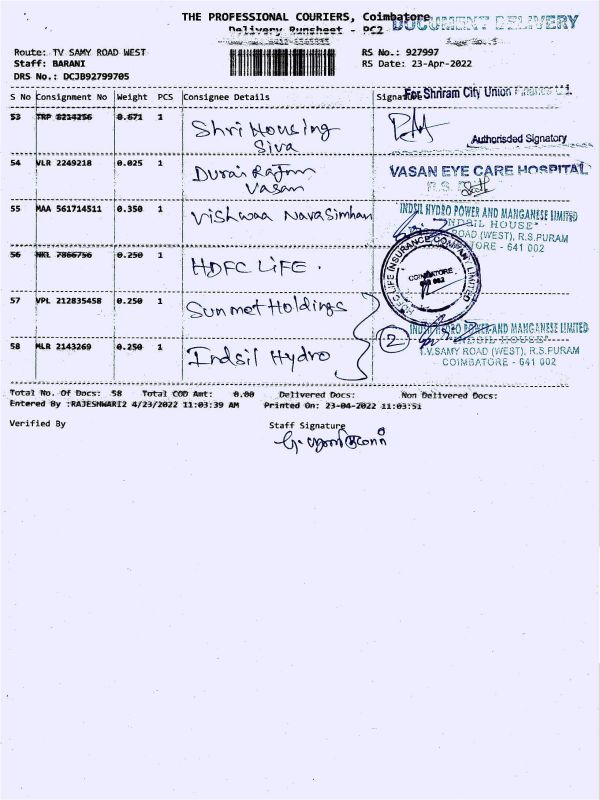 THE PROFESSIONAL COURIERS, Coimbatore
DOCUMENT DELIVERY
Delivery Runsheet - PC2
Route: TV SAMY ROAD WEST
RS No.: 927997
Staff: BARANI
RS Date: 23-Apr-2022
DRS No.: DCJB92799705
S No Consignment No Weight PCS Consignee Details Signature
For Shriram City Union
53 TRP 8214256 0.671 1 Shri Housing
Siva
Authorisded Signatory
54 VLR 2249218 0.025 1 Durai Rajan
Vasan
VASAN EYE CARE HOSPITAL
R.S.
55 MAA 561714511 0.350 1 Vishwaa Narasimhan
INDSIL HYDRO POWER AND MANGANESE LIMITED
"INDSIL HOUSE"
ROAD (WEST), R.S.PURAM
TORE - 641 002
56 NKL 7866756 0.250 1 HDFC LIFE.
HDFC LIFE INSURANCE COMPANY LIMITED
COIMBATORE
57 VPL 212835458 0.250 1 Summet Holdings
58 MLR 2143269 0.250 1 Indsil Hydro
2
INDSIL HYDRO POWER AND MANGANESE LIMITED
"INDSIL HOUSE"
T.V.SAMY ROAD (WEST), R.S.PURAM
COIMBATORE - 641 002
Total No. Of Docs: 58 Total COD Amt: 0.00 Delivered Docs: Non Delivered Docs:
Entered By :RAJESHWARI2 4/23/2022 11:03:39 AM Printed On: 23-04-2022 11:03:51
Verified By
Staff Signature